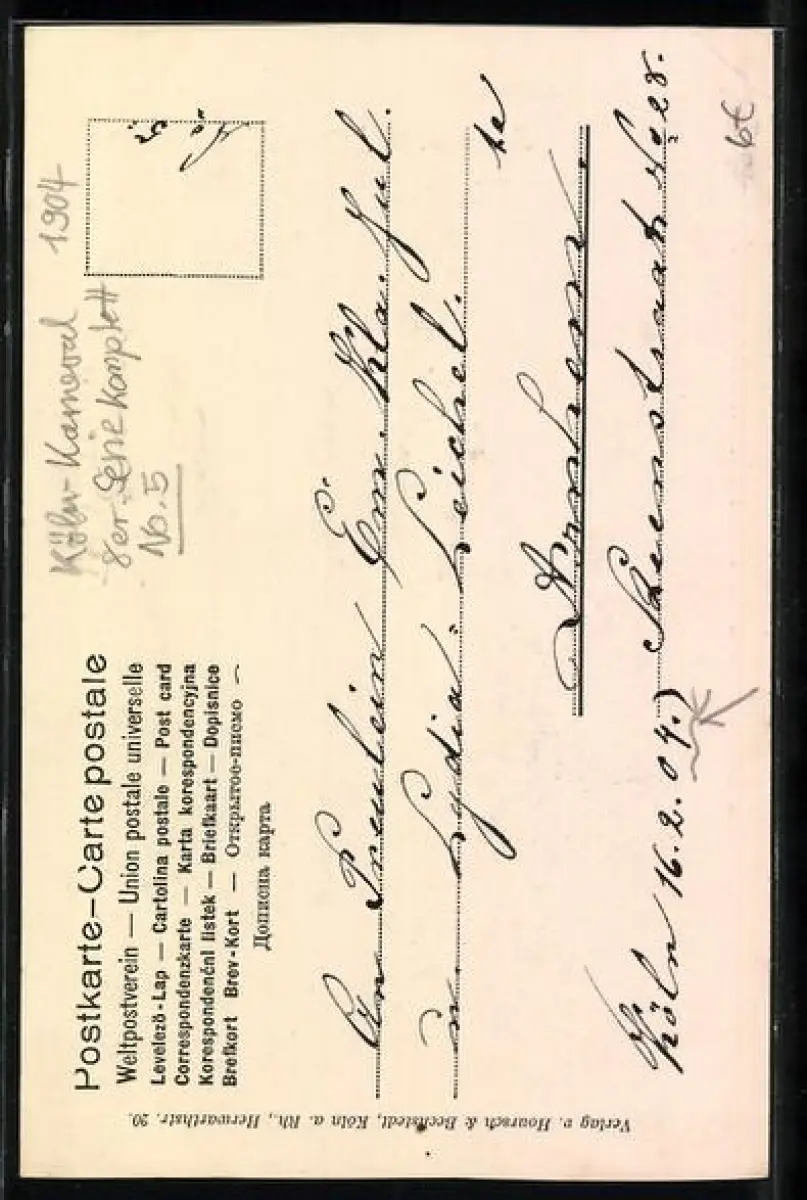 Postkarte—Carte postale
Weltpostverein — Union postale universelle
Levelező-Lap — Cartolina postale — Post card
Correspondenzkarte — Karta korespondencyjna
Korespondenční lístek — Briefkaart — Dopisnice
Brefkort Brev-Kort — Открытое-письмо —
Дописна карта
Köln-Karneval 1904
8er Serie komplett
No. 5
No 5.
An Fräulein Em. Kla. Jul.
u. Lydia Leichel.
te
Arnhem.
Köln 16.2.04.) Steenstraat No 28.
6€
Verlag v. Hoursch & Bechstedt, Köln a. Rh., Herwarthstr. 20.